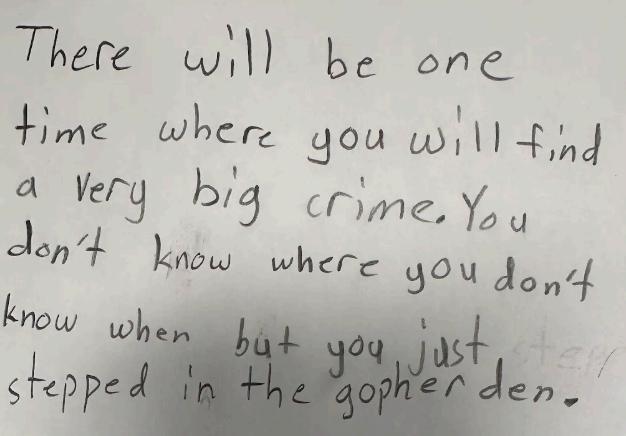 There will be one
time where you will find
a very big crime. You
don't know where you don't
know when but you just
stepped in the gopher den.